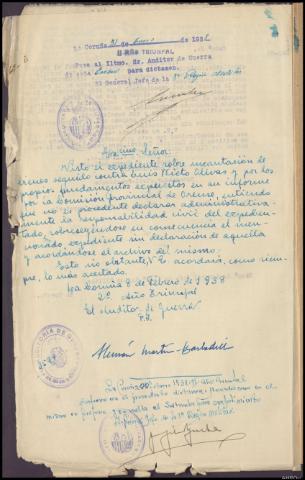 La Coruña 21 de Enero de 1938
II AÑO TRIUNFAL
Pase al Iltmo. Sr. Auditor de Guerra
de este Cuerpo para dictamen.
El General Jefe de la 8ª Región Militar
Excmo Señor:
Visto el expediente sobre incautación de
bienes seguido contra Luis Nieto Alvez y por los
propios fundamentos expuestos en su informe
por la Comisión provincial de Orense, entiendo
que no es procedente declarar administrativa-
mente la responsabilidad civil del expedien-
tado, sobreseyéndose en consecuencia el men-
cionado expediente sin declaración de aquella
y acordándose el archivo del mismo.
Esto no obstante, V.E. acordará, como siem-
pre, lo más acertado.
La Coruña 8 de Febrero de 1938
2º año Triunfal
El Auditor de Guerra
P.I.
AUDITORIA DE GUERRA
La Coruña 1938 IIº Año Triunfal
conforme con el precedente dictamen
el General Jefe de la 8ª Región Militar